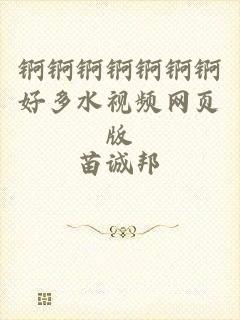 锕锕锕锕锕锕锕
好多水视频网页
版
苗诚邦